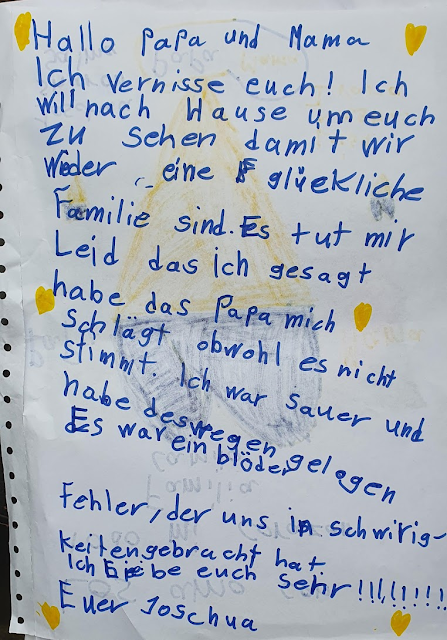 Hallo Papa und Mama
Ich vernisse euch! Ich
will nach Hause um euch
zu sehen damit wir
wieder eine glückliche
Familie sind. Es tut mir
Leid das ich gesagt
habe das Papa mich
schlägt obwohl es nicht
stimmt. Ich war sauer und
habe deswegen gelogen
Es war ein blöder
Fehler, der uns in schwirig-
keitengebracht hat.
Ich liebe euch sehr!!!!!!!!!
Euer Joschua